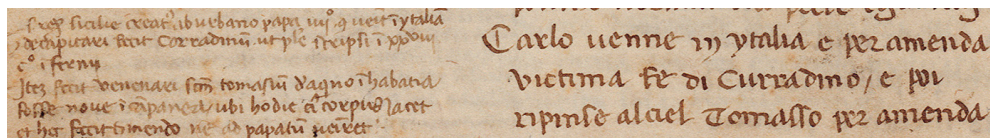 rex sicilie creat' ab urbano papa iiijº q venit ī ytaliā
decapitari fecit Corradinū ut ple scripsi ī xxviii
cº īferni
Itez fecit venenari scm tomasiū d aqno ī habatia
fosse nove ī cāpanea ubi hodie ei' corpus iacet
et hoc fecit timendo ne ad papatū veniret
Carlo venne in ytalia e per amenda
victima fe di Curradino / e poi
ripinse al ciel Tomasso per amenda